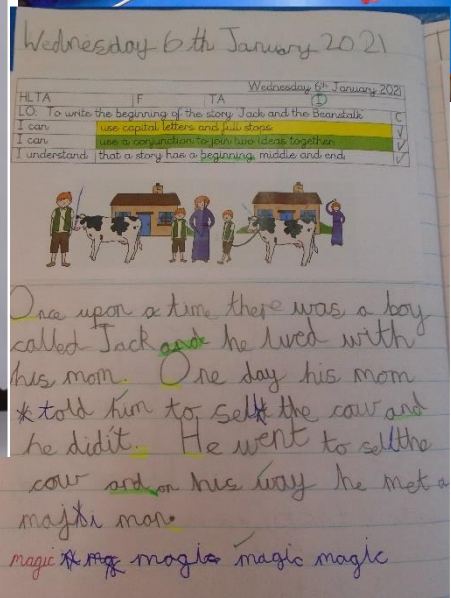 Wednesday 6th January 2021
Wednesday 6th January 2021
HLTA F TA I
LO: To write the beginning of the story Jack and the Beanstalk C
I can use capital letters and full stops. ✓
I can use a conjunction to join two ideas together ✓
I understand that a story has a beginning, middle and end. ✓
Once upon a time there was a boy
called Jack and he lived with
his mom. One day his mom
* told him to sell the cow and
he didit. He went to sell the
cow and on his way he met a
man.
magic magic magic magic